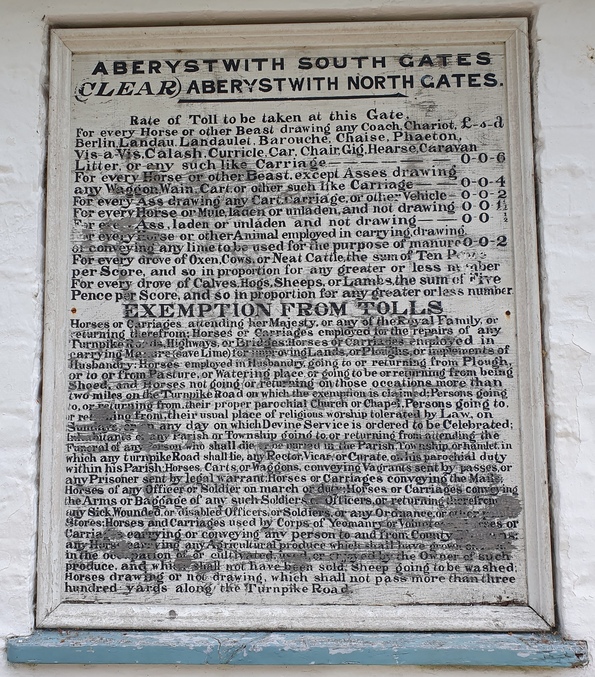 ABERYSTWITH SOUTH GATES
(CLEAR) ABERYSTWITH NORTH GATES.
Rate of Toll to be taken at this Gate.
For every Horse or other Beast drawing any Coach, Chariot, £-s-d
Berlin, Landau, Landaulet, Barouche, Chaise, Phaeton,
Vis-a-Vis, Calash, Curricle, Car, Chair, Gig, Hearse, Caravan
Litter, or any such like Carriage 0-0-6
For every Horse or other Beast, except Asses drawing
any Waggon, Wain, Cart, or other such like Carriage 0-0-4
For every Ass drawing any Cart, Carriage, or other Vehicle 0-0-2
For every Horse or Mule, laden or unladen, and not drawing 0-0-1½
For every Ass, laden or unladen and not drawing 0-0
For every Horse or other Animal employed in carrying, drawing,
or conveying any lime to be used for the purpose of manure 0-0-2
For every drove of Oxen, Cows, or Neat Cattle, the sum of Ten
per Score, and so in proportion for any greater or less number
For every drove of Calves, Hogs, Sheeps, or Lambs, the sum of Five
Pence per Score, and so in proportion for any greater or less number
EXEMPTION FROM TOLLS
Horses or Carriages attending her Majesty, or any of the Royal Family, or
returning therefrom; Horses or Carriages employed for the repairs of any
Turnpike Roads, Highways, or Bridges: Horses or Carriages employed in
carrying Manure (save Lime) for improving Lands, or Ploughs, or implements of
Husbandry: Horses employed in Husbandry, going to or returning from Plough,
or to or from Pasture, or Watering place, or going to be or returning from being
Shoed, and Horses not going or returning on those occations more than
two miles on the Turnpike Road on which the exemption is claimed; Persons going
to, or returning from, their proper parochial Church or Chapel, Persons going to,
or from, their usual place of religious worship tolerated by Law, on
Sundays or any day on which Devine Service is ordered to be Celebrated;
Inhabitants of any Parish or Township going to, or returning from attending the
Funeral of any Person who shall die or buried in the Parish, Township, or hamlet, in
which any turnpike Road shall lie, any Rector, Vicar, or Curate, on his parochial duty
within his Parish: Horses, Carts, or Waggons, conveying Vagrants sent by passes, or
any Prisoner sent by legal warrant: Horses or Carriages conveying the Mail,
Horses of any Officer or Soldier on march or duty: Horses or Carriages conveying
the Arms or Baggage of any such Soldiers Officers, or returning therefrom
any Sick, Wounded, or disabled Officers, or Soldiers, or any Ordnance, or other
Stores: Horses and Carriages used by Corps of Yeomanry or
Carriages carrying or conveying any person to and from County
any Horse carrying any Agricultural produce which shall have grown
in the or cultivated, used, or by the Owner of
produce, and which shall not have been sold; Sheep going to be washed:
Horses drawing or not drawing, which shall not pass more than three
hundred yards along the Turnpike Road